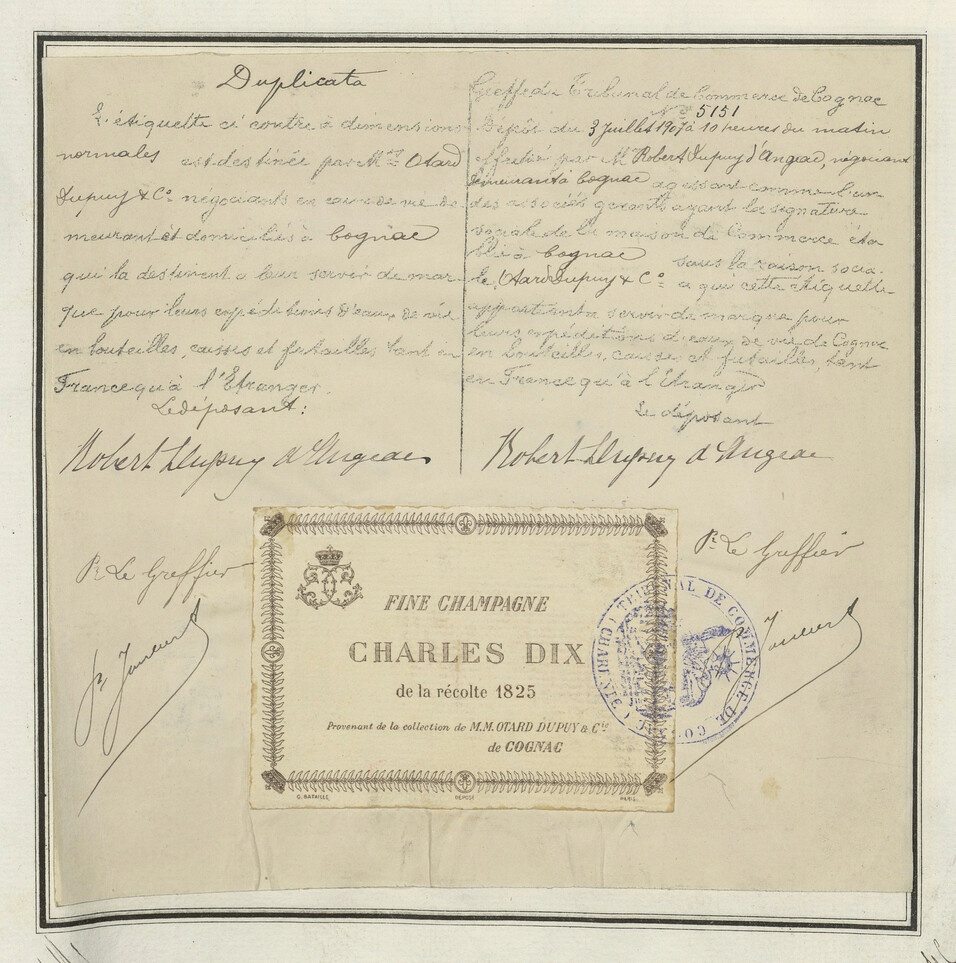 Duplicata
L'étiquette ci contre à dimensions
normales est destinée par M.rs Otard
Dupuy & Co négociants en eaux de vie de
meurant et domiciliés à Cognac
qui la destinent a leur servir de mar-
que pour leurs expéditions d'eaux de vie
en bouteilles, caisses et futailles tant en
France qu'à l'Etranger.
Le déposant:
Robert Dupuy d'Angeac
Pr Le Greffier
Greffe du Tribunal de Commerce de Cognac
No 5151
Dépôt du 3 juillet 1907 à 10 heures du matin
effectué par M. Robert Dupuy d'Angeac, négociant
demeurant à Cognac agissant comme l'un
des associés gérants ayant la signature
sociale de la maison de Commerce éta
blie à Cognac sous la raison socia-
le, Otard Dupuy & Co a qui cette étiquette
appartient a servir de marque pour
leurs expéditions d'eaux de vie de Cognac
en bouteilles, caisses et futailles, tant
en France qu'à l'Etranger
Le déposant
Robert Dupuy d'Angeac
Pr Le Greffier
FINE CHAMPAGNE
CHARLES DIX
de la récolte 1825
Provenant de la collection de M.M. OTARD DUPUY & Cie
de COGNAC
G. BATAILLE DÉPOSÉ PARIS
TRIBUNAL DE COMMERCE DE COGNAC (CHARENTE)